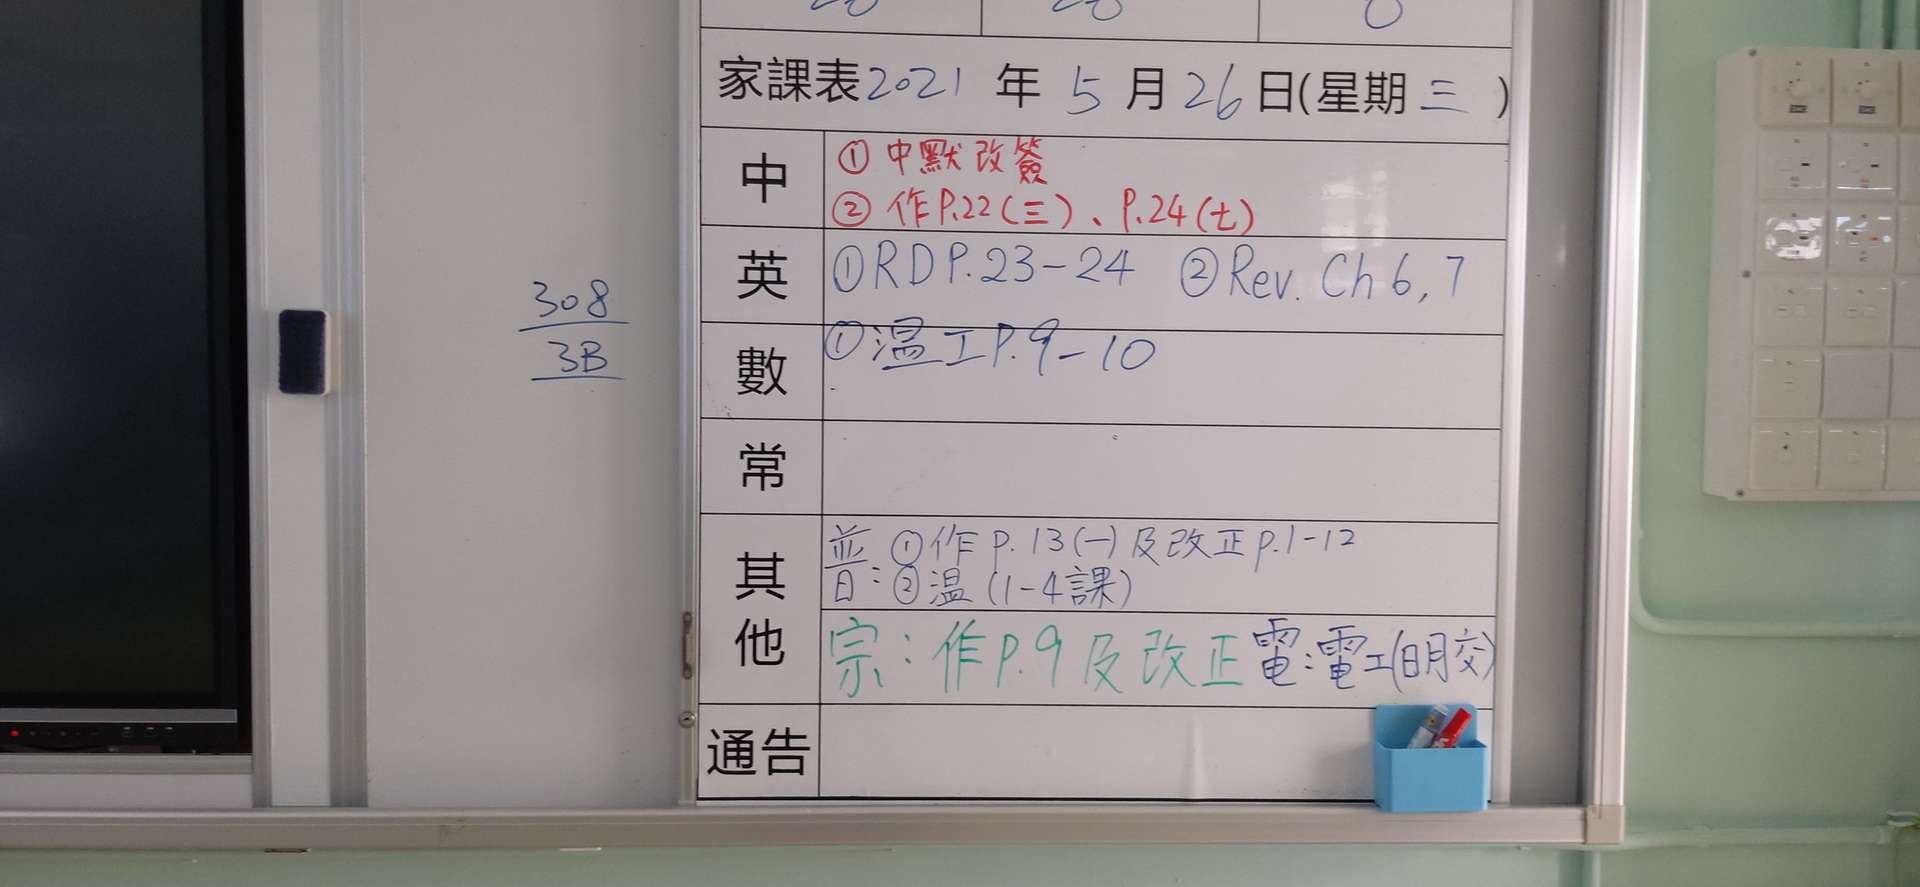 20 20 0
家課表2021年5月26日(星期三)
中
①中默改簽
②作P.22(三)、P.24(七)
英
①RD P.23-24 ②Rev. Ch 6,7
數
①溫工P.9-10
常
其他
普:①作P.13(一)及改正p.1-12
②溫(1-4課)
宗:作P.9及改正 電:電工(明交)
通告
308
3B